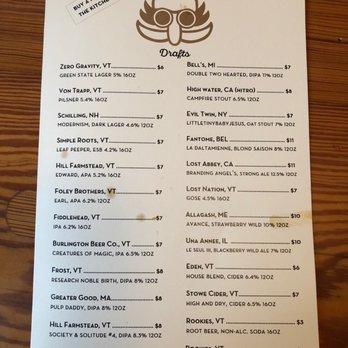 BUY A
THE KITCHE
Drafts
ZERO GRAVITY, VT $6
GREEN STATE LAGER 5% 16OZ
VON TRAPP, VT $7
PILSNER 5.4% 16OZ
SCHILLING, NH $7
MODERNISM, DARK LAGER 4.6% 12OZ
SIMPLE ROOTS, VT $7
LEAF PEEPER, ESB 4.2% 16OZ
HILL FARMSTEAD, VT $7
EDWARD, APA 5.2% 16OZ
FOLEY BROTHERS, VT $7
EARL, APA 6.2% 12OZ
FIDDLEHEAD, VT $7
IPA 6.2% 16OZ
BURLINGTON BEER CO., VT $7
CREATURES OF MAGIC, IPA 6.5% 12OZ
FROST, VT $8
RESEARCH NOBLE BIRTH, DIPA 8% 12OZ
GREATER GOOD, MA $8
PULP DADDY, DIPA 8% 12OZ
HILL FARMSTEAD, VT $8
SOCIETY & SOLITUDE #4, DIPA 8.3% 12OZ
BELL'S, MI $7
DOUBLE TWO HEARTED, DIPA 11% 12OZ
HIGH WATER, CA (NITRO) $8
CAMPFIRE STOUT 6.5% 12OZ
EVIL TWIN, NY $7
LITTLETINYBABYJESUS, OAT STOUT 7% 12OZ
FANTOME, BEL $11
LA DALTAMIENNE, BLOND SAISON 8% 12OZ
LOST ABBEY, CA $11
BRANDING ANGEL'S, STRONG ALE 12.5% 12OZ
LOST NATION, VT $7
GOSE 4.5% 16OZ
ALLAGASH, ME $10
AVANCE, STRAWBERRY WILD 10% 12OZ
UNA ANNEE, IL $10
LE SEUL III, BLACKBERRY WILD ALE 7% 12OZ
EDEN, VT $6
HOUSE BLEND, CIDER 6.4% 12OZ
STOWE CIDER, VT $7
HIGH AND DRY, CIDER 6.5% 16OZ
ROOKIES, VT $3
ROOT BEER, NON-ALC. SODA 16OZ